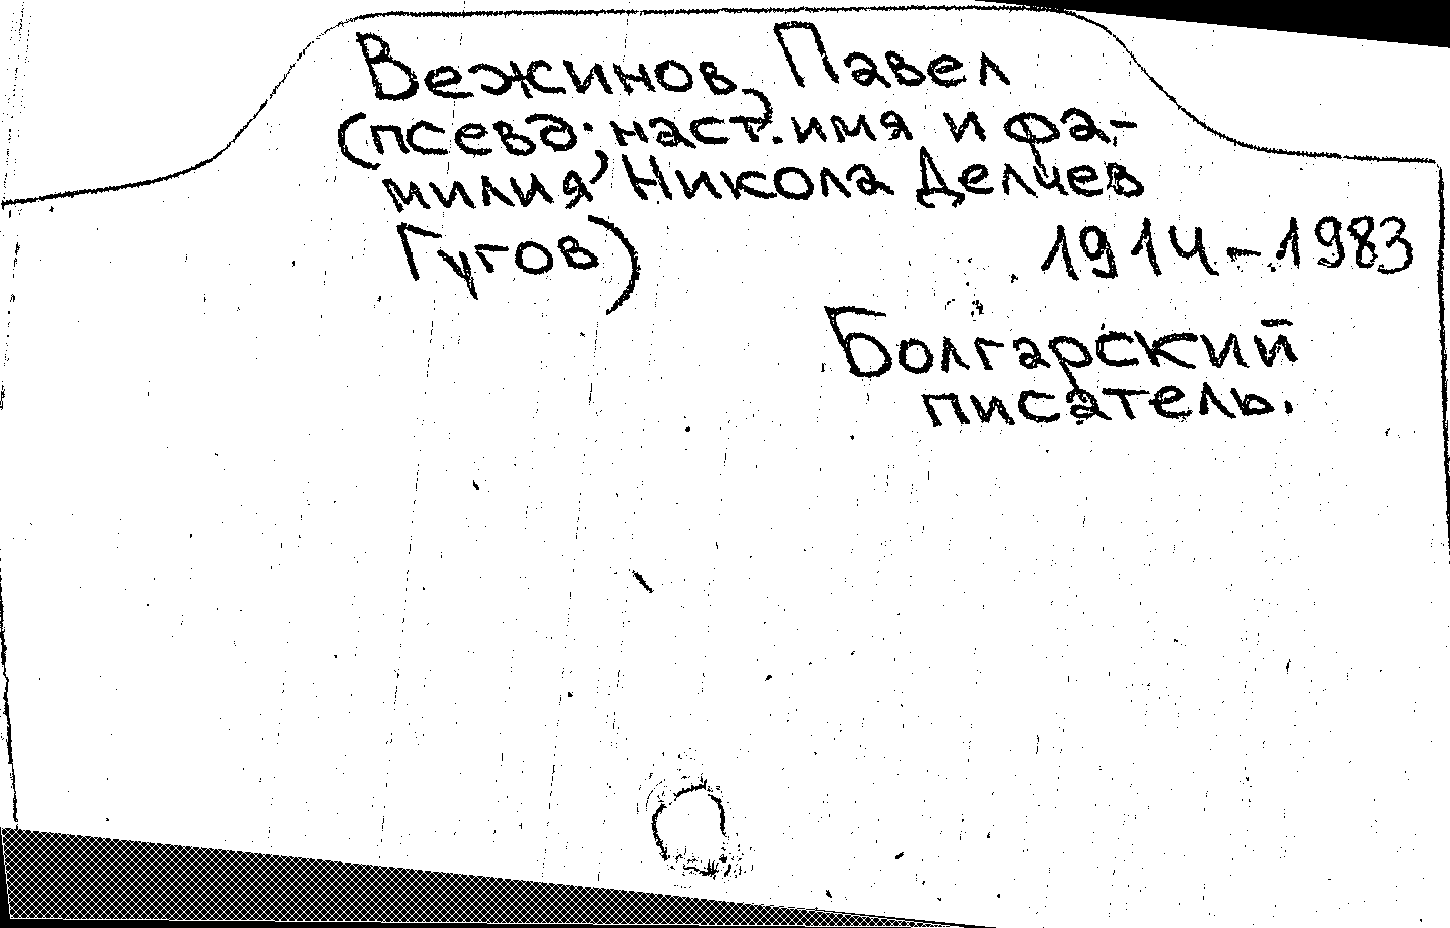 Вежинов, Павел
(псевд; наст. имя и фа-
милия, Никола Делчев
Гугов)
1914-1983
Болгарский
писатель.